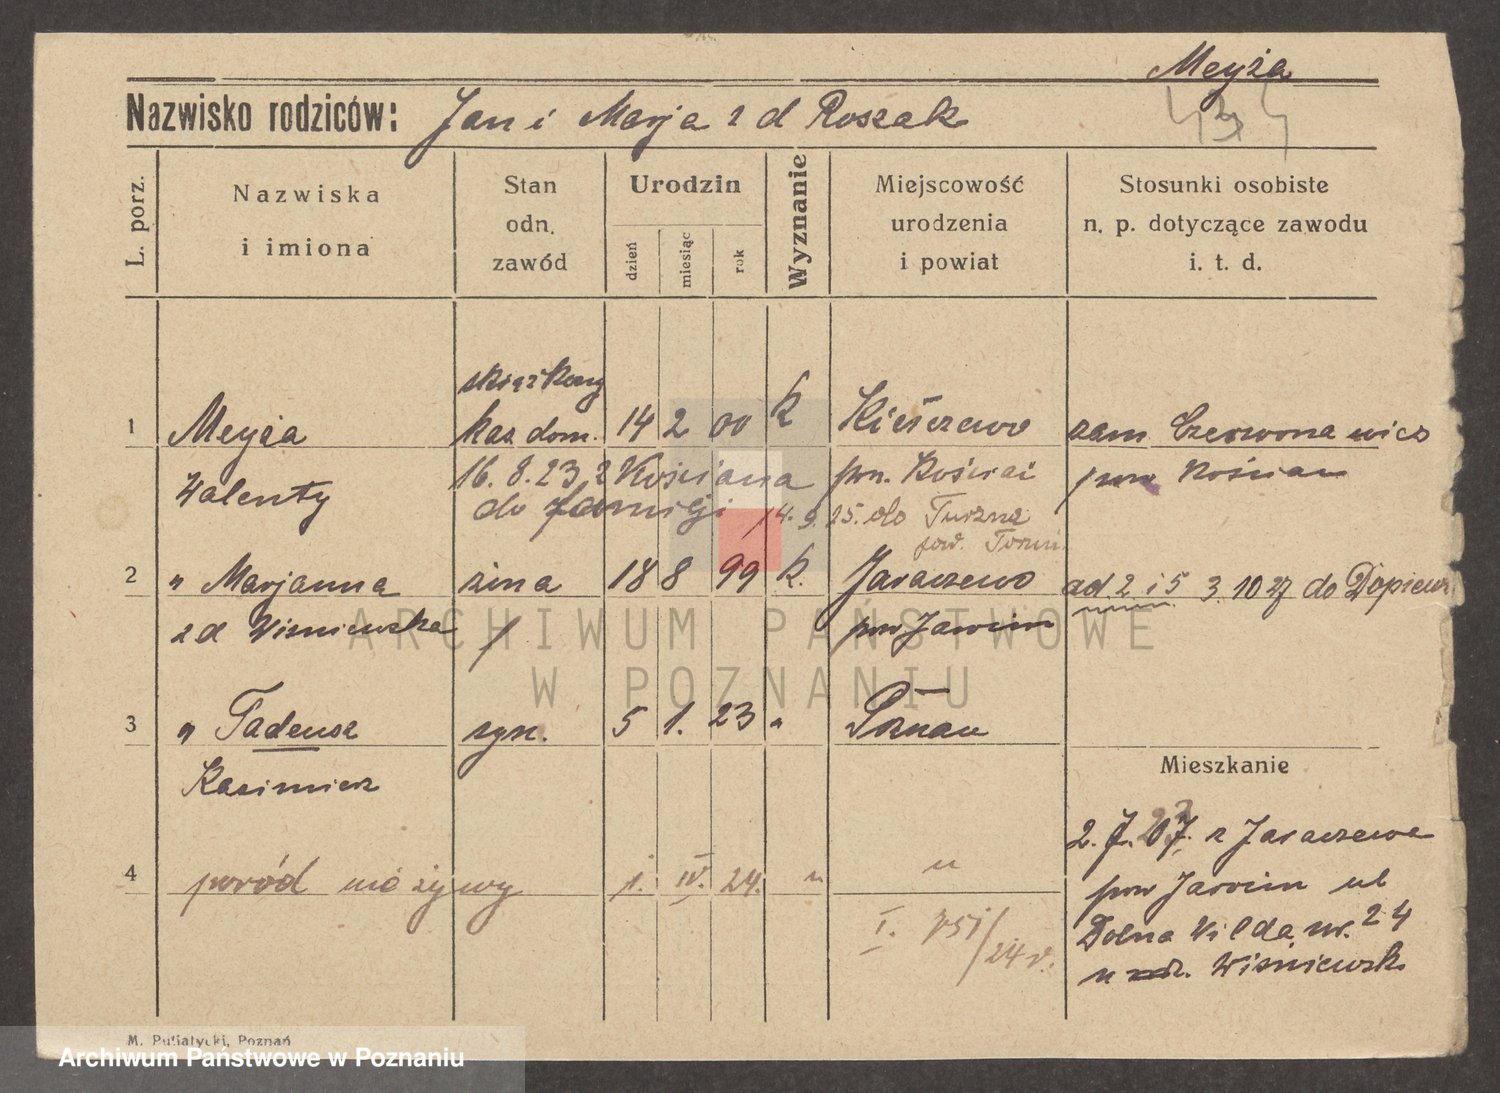 Meyza
Nazwisko rodziców: Jan i Marja z d Roszak
L. porz.
Nazwiska
i imiona
Stan
odn.
zawód
Urodzin
dzień
miesiąc
rok
Wyznanie
Miejscowość
urodzenia
i powiat
Stosunki osobiste
n. p. dotyczące zawodu
i. t. d.
1 Meyza kaz dom. 14 2 00 K zam Czerwona wieś
Walenty 16. 8. 23 z Kościana pow. Kościan pow Kościan
do familji 14. 9. 25. do Turzna
pow. Toruń
2 " Marjanna żona 18 8 99 K. Jaraczewo ad. 2 i 5 3. 10 27 do Dopiewa
z d Wisniewska pow Jarocin
3 " Tadeusz syn. 5 1. 23 " Poznań
Kazimierz
Mieszkanie
z Jaraczewa
4 poród nieżywy 1. IV. 24. " "
pow Jarocin ul
I. 751/24 r.
Dolna Wilda nr. 24
u Wisniewsk.
M. Putiatycki, Poznań
ARCHIWUM PAŃSTWOWE
W POZNANIU
Archiwum Państwowe w Poznaniu